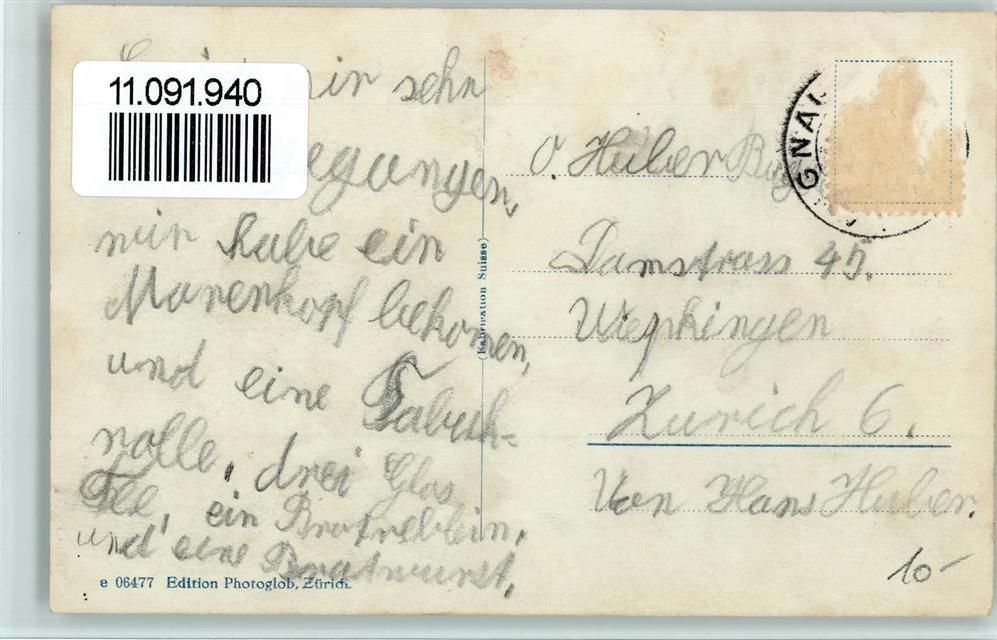 11.091.940
mir sehr
egangen,
wir habe ein
Morenkopf bekomen,
und eine Tabuk-
rolle, drei Glas
Tee, ein Brotreblein,
und eine Bratwurst,
e 06477 Edition Photoglob, Zürich.
(Fabrication Suisse)
GNAU
O. Huber
Damstrass 45.
Wiepkingen
Zurich 6.
Von Hans Huber.
10-